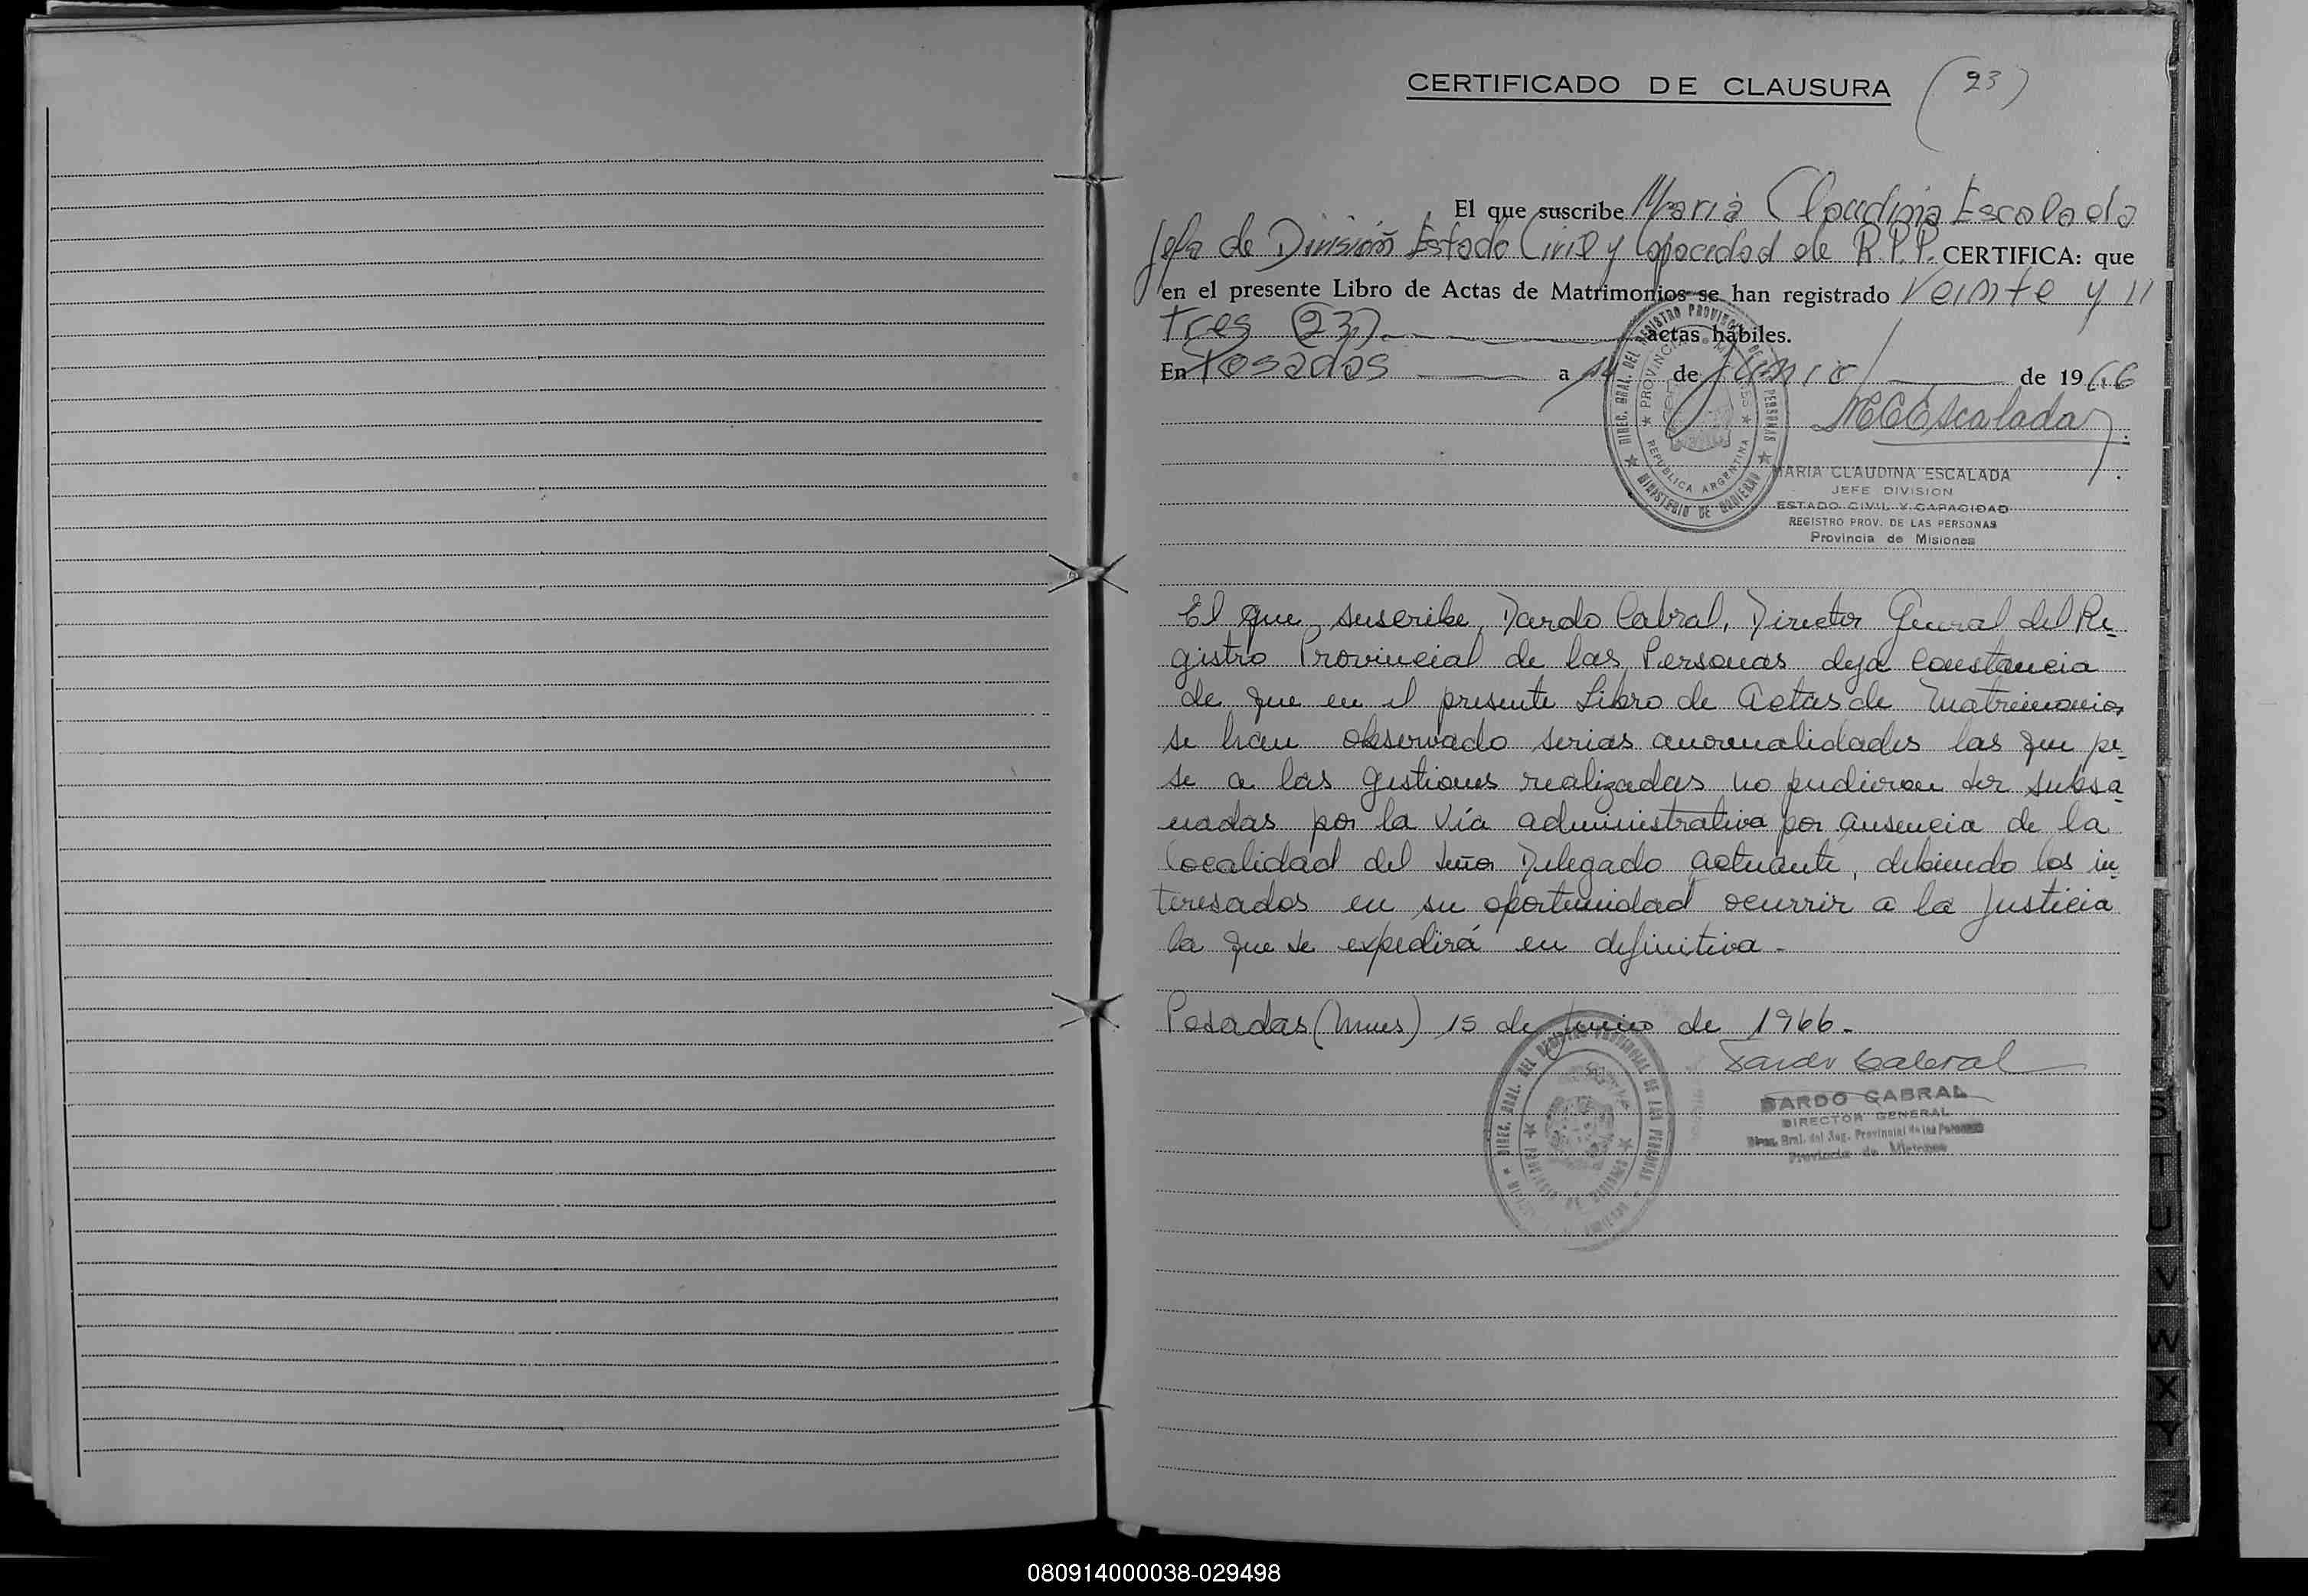 CERTIFICADO DE CLAUSURA (23)
El que suscribe Maria Claudina Escalada
Jefa de División Estado Civil y Capacidad de R.P.P. CERTIFICA: que
en el presente Libro de Actas de Matrimonios se han registrado Veinte y
tres (23) actas hábiles.
En Posadas a 14 de Junio de 1966
MCEscalada
MARIA CLAUDINA ESCALADA
JEFE DIVISION
ESTADO CIVIL Y CAPACIDAD
REGISTRO PROV. DE LAS PERSONAS
Provincia de Misiones
DIREC. GRAL. DEL REGISTRO PROVINCIAL DE LAS PERSONAS
MINISTERIO DE GOBIERNO
PROVINCIA DE MISIONES
REPUBLICA ARGENTINA
El que suscribe, Dardo Cabral, Director General del Re-
gistro Provincial de las Personas deja constancia
de que en el presente Libro de Actas de Matrimonios
se han observado serias anormalidades las que pe-
se a las gestiones realizadas no pudieron ser subsa-
nadas por la vía administrativa por ausencia de la
localidad del señor Delegado actuante, debiendo los in-
teresados en su oportunidad ocurrir a la Justicia
la que se expedirá en definitiva.-
Posadas (Mnes) 15 de Junio de 1966.-
Dardo Cabral
DARDO CABRAL
DIRECTOR GENERAL
Direc. Gral. del Reg. Provincial de las Personas
Provincia de Misiones
DIREC. GRAL. DEL REGISTRO PROVINCIAL DE LAS PERSONAS
PROVINCIA DE MISIONES
S
T
U
V
W
X
Y
Z
080914000038-029498